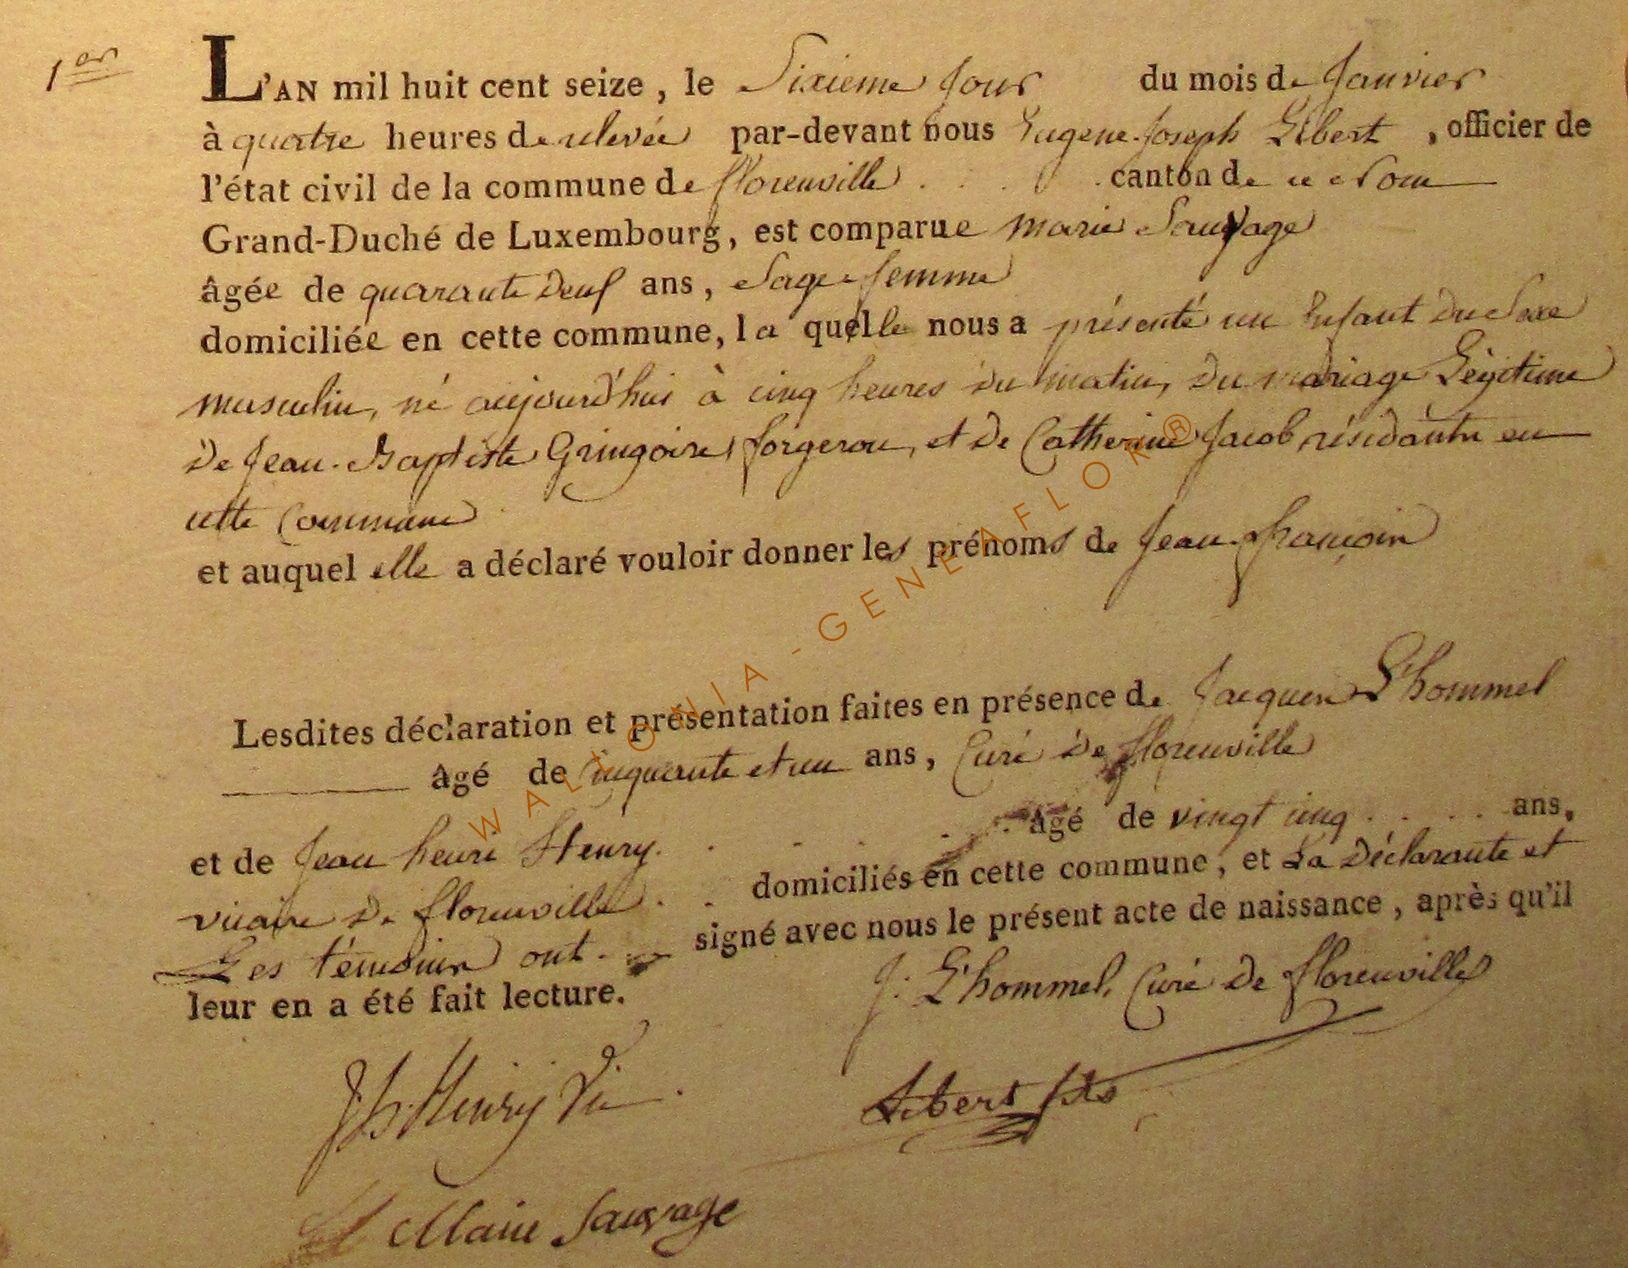 1er
L'AN mil huit cent seize, le Sixieme Jour du mois de Janvier
à quatre heures de relevée par-devant nous Eugene-Joseph Libert, officier de
l'état civil de la commune de florenville . . . canton de ce nom
Grand-Duché de Luxembourg, est comparue Marie Sauvage
âgée de quarante deux ans, Sage-femme
domiciliée en cette commune, la quelle nous a présenté un Enfant du Sexe
masculin, né aujourd'hui à cinq heures du matin, du mariage Légitime
de Jean-Baptiste Gringoire, forgeron, et de Catherine Jacob, résidante en
cette Commune
et auquel elle a déclaré vouloir donner les prénoms de Jean-françois
Lesdites déclaration et présentation faites en présence de Jacques L'hommel
âgé de Cinquante et un ans, Curé de florenville
et de Jean henri Henry . . . . . âgé de vingt cinq . . . . ans,
vicaire de florenville . . domiciliés en cette commune, et La Déclarante et
Les témoins ont . . signé avec nous le présent acte de naissance, après qu'il
leur en a été fait lecture.
J: L'hommel, Curé de florenville
J h. Henry Vic.
Libert
Marie Sauvage
WALLONIA-GENEAFLOR®